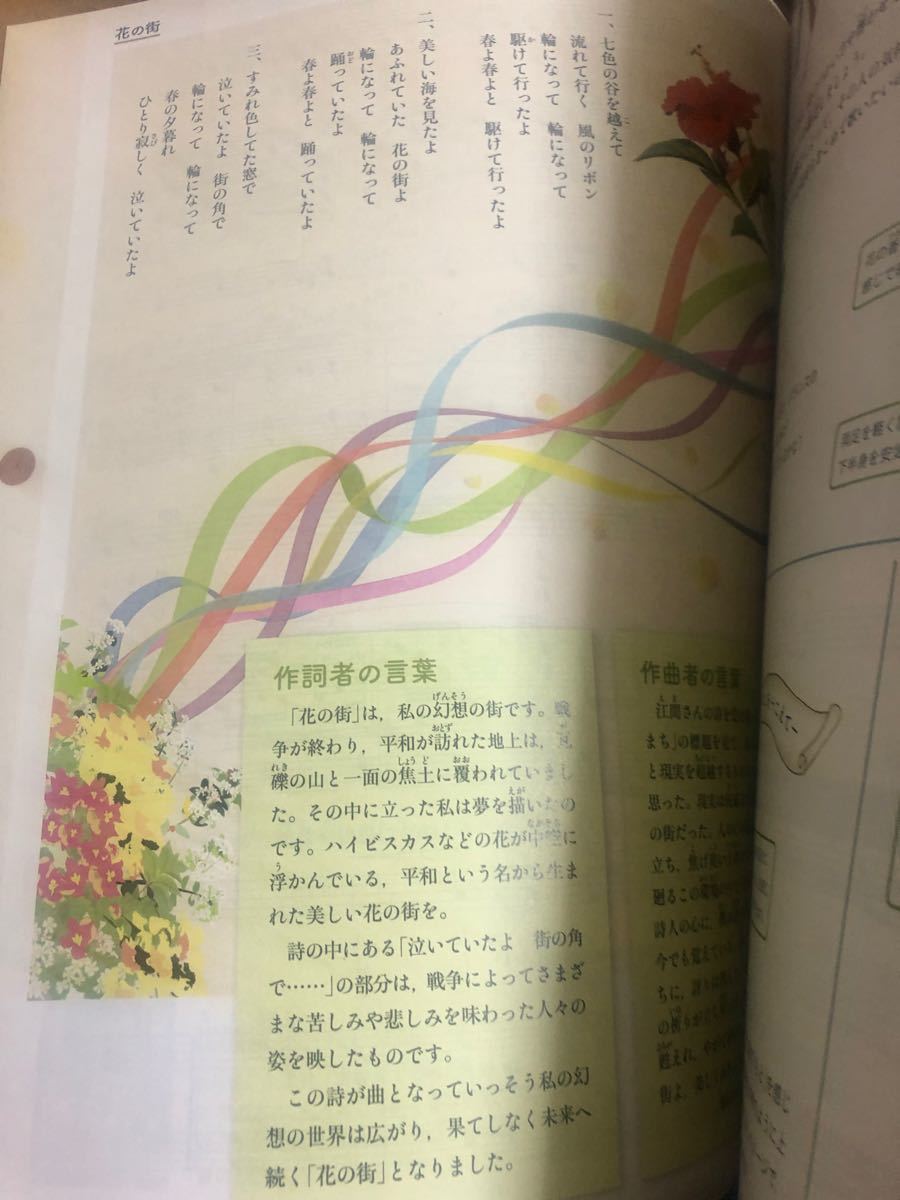 花の街
一、七色の谷を越えて
流れて行く　風のリボン
輪になって　輪になって
駆けて行ったよ
春よ春よと　駆けて行ったよ
二、美しい海を見たよ
あふれていた　花の街よ
輪になって　輪になって
踊っていたよ
春よ春よと　踊っていたよ
三、すみれ色してた窓で
泣いていたよ　街の角で
輪になって　輪になって
春の夕暮れ
ひとり寂しく　泣いていたよ
作詞者の言葉
「花の街」は，私の幻想の街です。戦
争が終わり，平和が訪れた地上は，瓦
礫の山と一面の焦土に覆われていまし
た。その中に立った私は夢を描いたの
です。ハイビスカスなどの花が中空に
浮かんでいる，平和という名から生ま
れた美しい花の街を。
詩の中にある「泣いていたよ　街の角
で……」の部分は，戦争によってさまざ
まな苦しみや悲しみを味わった人々の
姿を映したものです。
この詩が曲となっていっそう私の幻
想の世界は広がり，果てしなく未来へ
続く「花の街」となりました。
作曲者の言葉
江間さんの詩を
まち」の標題を
と現実を超越する
思った。現実は
の街だった。
立ち，焦げ
廻るこの
詩人の心に，
今でも覚えてい
ちに，
の祈りが
甦えれ，
街よ，美し
花の
感じで
両足を軽く
下半身を安